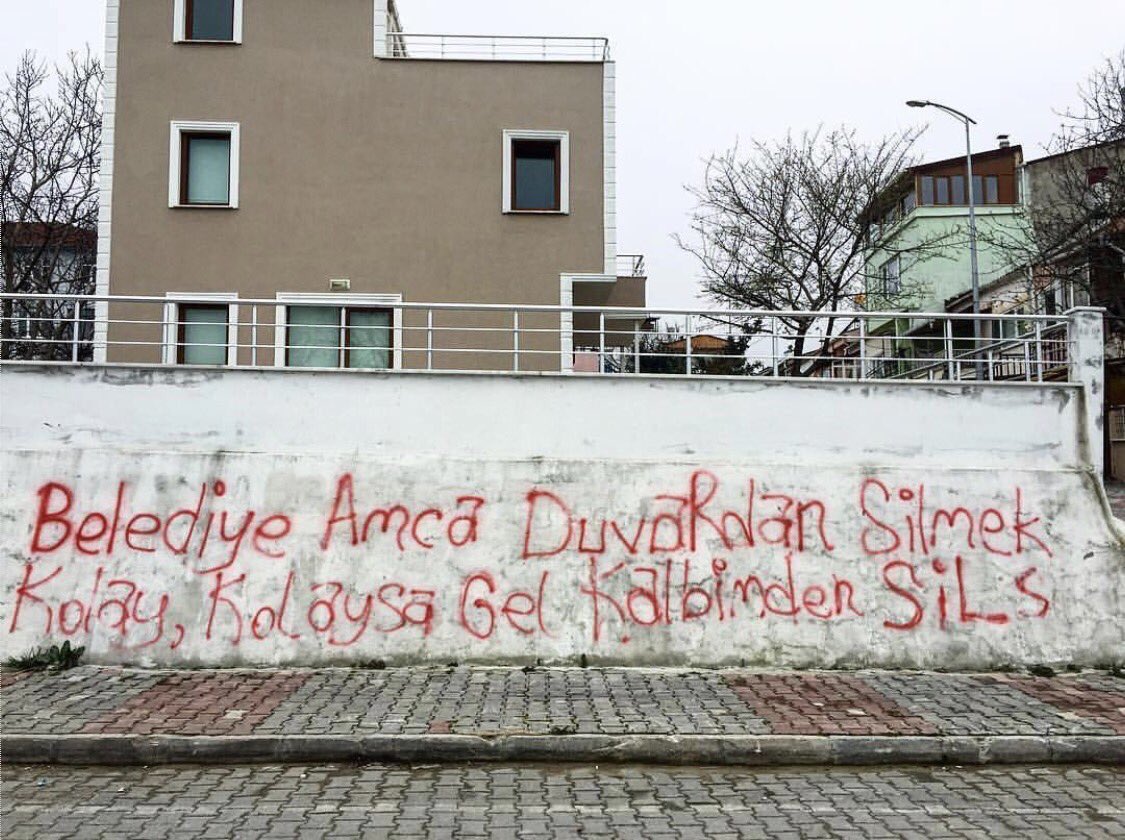 Belediye Amca Duvardan Silmek
Kolay, Kolaysa Gel Kalbimden SiLs